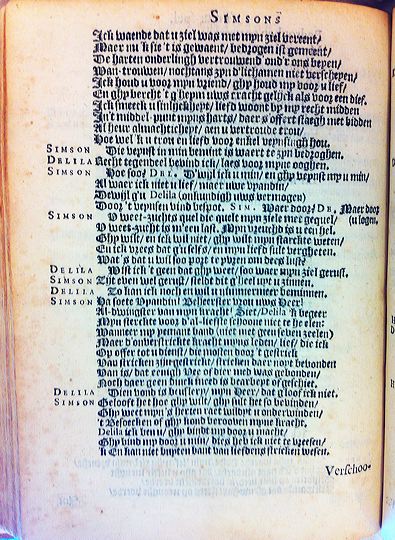 SIMSONS
Ick waende dat u ziel was met mijn ziel vereent/
Maer nu k sie 't is gewaent/ bedrogen ist gemeent/
De harten onderlingh vertrouwend ond'r ons beyen/
Wan-trouwen/ nochtans zyn d'lichamen niet verscheyen/
Ick houd u voor mijn vriend/ ghy houd my voor u lief/
En ghy berecht 't ghepeu uws cracht gelijck als voor een dief.
Ick smeeck u sinlijckheyt/ liefd woont by my recht midden
In't middel-punt mijns harts/ daer s'offert staegh met bidden
Al heur almachticheyt/ aen u vertroude trou/
Hoe wel k u trou en liefd voor enkel veynsingh hou.
SIMSON Die veynst in min bemint is waert te zyn bedroghen.
DELILA Recht tegendeel bevind ick/ laes voor mijne ooghen.
SIMSON Hoe soo/ DEL. D'wijl ick u min/ en ghy veynst my u min/
Al waer ick niet u lief/ maer uwe vyandin/
Dewijl g'u Delila (onkundigh uws vermogen)
Door 't veynsen vind bespot. SIM. Waer door/ DE. Maer door
SIMSON U weet-zuchts quel die quelt mijn ziele met gequel/ (u logen.
U weet-zucht is m'een last. Mijn vreucht is u een hel.
Ghy wilt/ en ick wil niet/ ghy wilt mijn starckte weten/
En ick vrees dat g'u selfs/ en mijn liefd sult vergheeten.
Wat 's dat u wil soo port te pynen om dees lust?
DELILA Wist ick 't geen dat ghy weet/ soo waer mijn ziel gerust.
SIMSON Zijt even wel gerust/ steldt dit g'heel uyt u zinnen.
DELILA Zo kan ick noch en wil u nimmermeer beminnen.
SIMSON Ha soete Vyandin! Beheerster vrou uws Heer!
Al-dwingster van mijn kracht! Siet/ Delila k begeer
Mijn sterckte voor d'al-liefste schoonne niet te helen:
Wanneer my yemant band (niet met geen seven zeelen)
Maer d'onverstrickte kracht mijns leden/ lief/ die ick
Op offer tot u dienst/ die mosten door 't gestrick
Van stricken zijn gestrickt/ stricken daer noyt bevonden
Van is/ dat eenigh Vee of dier med was gebonden/
Noch daer geen dinck meed is bearbeyt of geschiet.
DELILA Dien vond is beuslery/ mijn Heer/ dat g'loof ick niet.
SIMSON Gelooft het hoe ghy wilt/ ghy sult het so bevinden/
Ghy weet mijn's herten raet wildyt u onderwinden/
't Besoecken of ghy kond verooven mijne kracht.
Delila ick ben u/ ghy bindt my door u macht/
Ghy bind my door u min/ dies heb ick niet te vreesen/
'k En kan niet buyten bant van liefdens stricken wesen.
Verschoo-